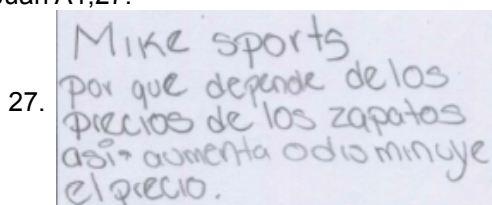 27.
Mike sports
por que depende de los
precios de los zapatos
asi aumenta o diominuye
el precio.